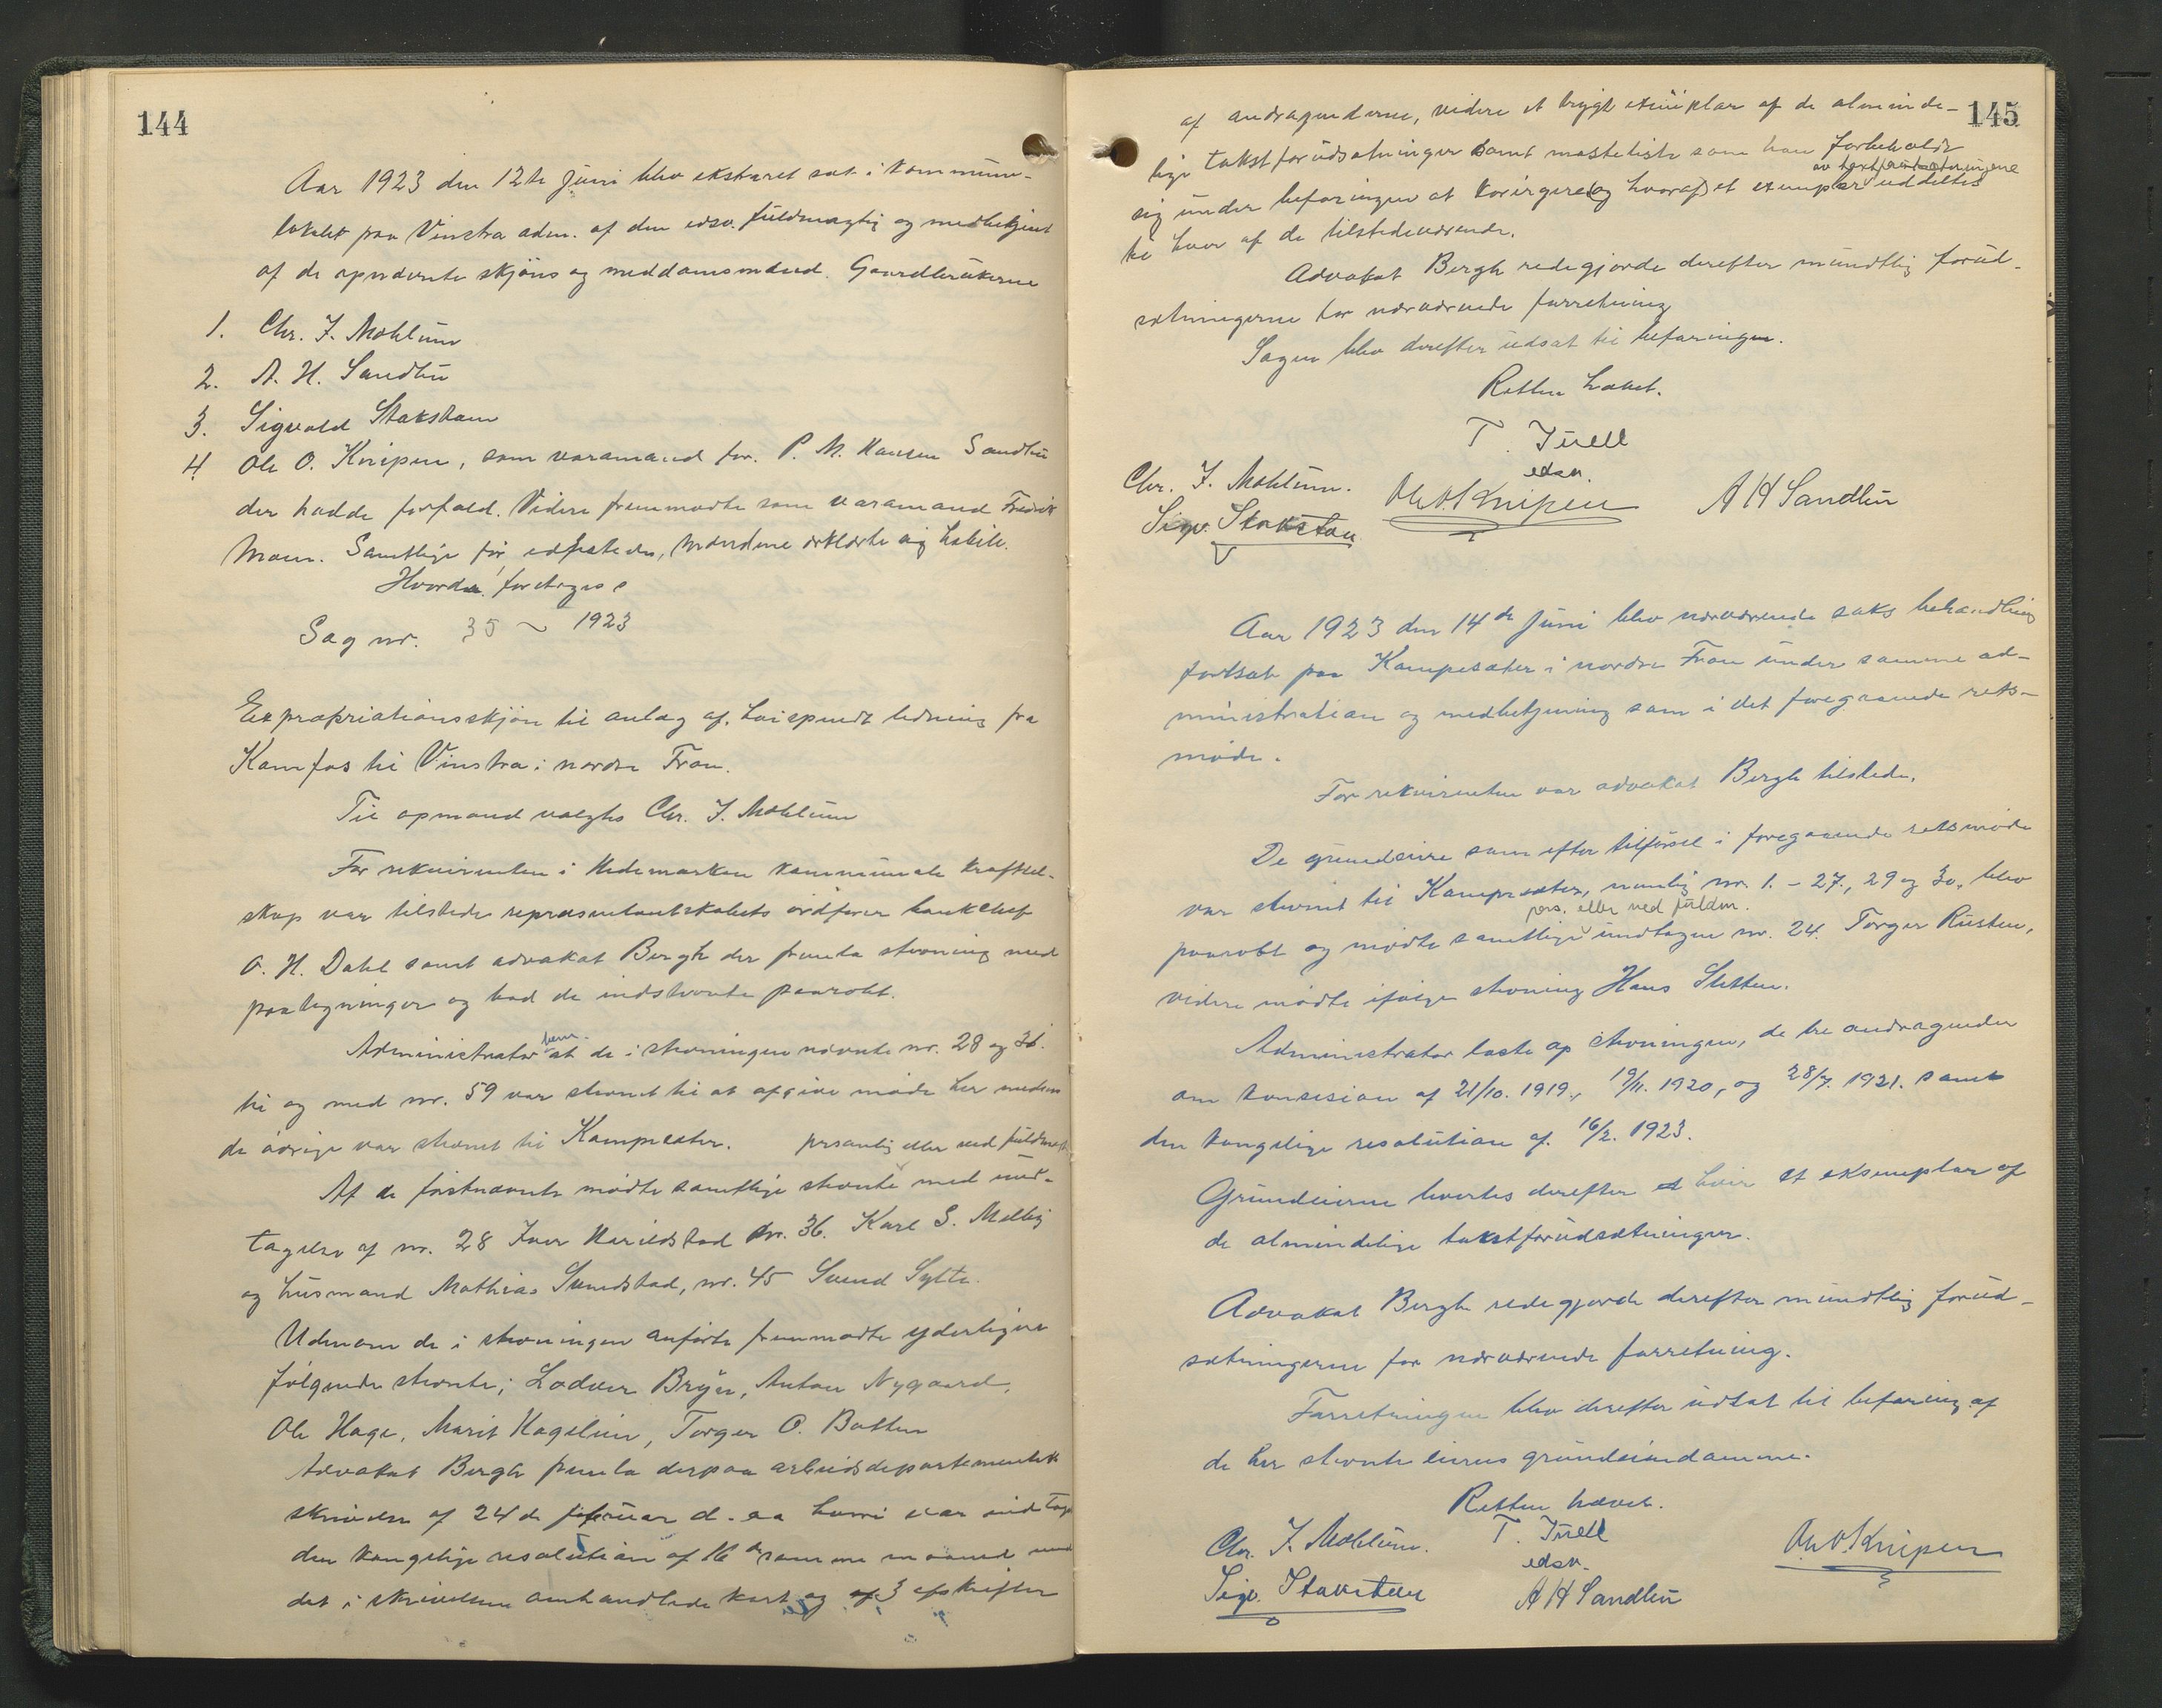 144
Aar 1923 den 12te juni blev ekstraret sat i kommune-
lokalet paa Vinstra adm. af den edsv. fuldmægtig og medbetjent
af de opnævnte skjøns og meddomsmænd. Gaardbrukerne
1. Chr. J. Mohlum
2. A. H. Sandbu
3. Sigvald Stakston
4 Ole O. Knipen, som varamand for P. M. Hansen Sandbu
der hadde forfald. Videre fremmødte som varamand Fredrik
Moen. Samtlige før edfæstede, mændene erklærte sig habile.
Hvorda foretoges
Sag nr. 35 ~ 1923
Expropriationsskjøn til anlæg af høispendt ledning fra
Kamfos til Vinstra i nordre Fron.
Til opmand valgtes Chr. J. Mohlum
For rekvirenten i Hedemarken kommunale kraftsel-
skap var tilstede repræsentantskabets ordfører bankchef
O. H. Dahl samt advokat Bergh der fremla stevning med
paategninger og bad de indstevnte paaropt.
Administrator bem. at de i stevningen nævnte nr. 28 og 31.
til og med nr. 59 var stevnet til at afgive møde her medens
de øvrige var stevnet til Kampesæter. personlig eller ved fuldmægt
Af de førstnævnte mødte samtlige stevnte med und-
tagelse af nr. 28 Iver Harildstad nr. 36. Karl S. Melby
og husmand Mathias Sundstad, nr. 45 Svend Sylte.
Udenom de i stevningen anførte fremmødte yderligere
følgende stevnte; Lodver Bryn, Anton Nygaard,
Ole Hage, Marit Hagelien, Torger O. Botten
Advokat Bergh fremla derpaa arbeidsdepartementets
skrivelse af 24de februar d. aa hvori var indtagt
den kongelige resolution af 16de samme maaned med
det i skrivelsen omhandlede kart og af 3 afskrifter
145
af andragenderne, videre et trygt exemplar af de alminde-
lige takstforudsætninger samt masteliste som han forbeholdt
av takstforutsetningene
sig under befaringen at korrigere (og hvoraf) et exemplar uddeltes
til hver af de tilstedeværende.
Advokat Bergh redegjorde derefter mundtlig forud-
sætningerne for nærværende forretning
Sagen blev derefter udsat til befaringen.
Retten hævet.
T. Juell
edsv.
Chr. J. Mohlum. Ole O. Knipen A H Sandbu
Sigv. Stakston
Aar 1923 den 14de juni blev nærværende saks behandling
fortsat paa Kampesæter i nordre Fron under samme ad-
ministration og medbetjening som i det foregaaende rets-
møde.
For rekvirenten var advokat Bergh tilstede.
De grundeiere som efter tilførsel i foregaaende retsmøde
var stevnet til Kampesæter, nemlig nr. 1. - 27., 29 og 30, blev
pers. eller ved fuldm.
paaropt og mødte samtlige undtagen nr. 24. Torger Rusten,
videre mødte ifølge stevning Hans Sletten.
Administrator læste op stevningen, de tre andragender
om konsesion af 21/10. 1919., 19/11. 1920, og 28/7. 1921. samt
den kongelige resolution af. 16/2. 1923.
Grundeierne leverdes derefter et hver et eksemplar af
de almindelige takstforudsætninger.
Advokat Bergh redegjorde derefter mundtlig forud-
sætningerne for nærværende forretning.
Forretningen blev derefter udsat til befaring af
de her stevnte eieres grundeiendomme.
Retten hævet.
Chr. J. Mohlum. T. Juell Ole O. Knipen
edsv.
Sigv. Stakston A H Sandbu